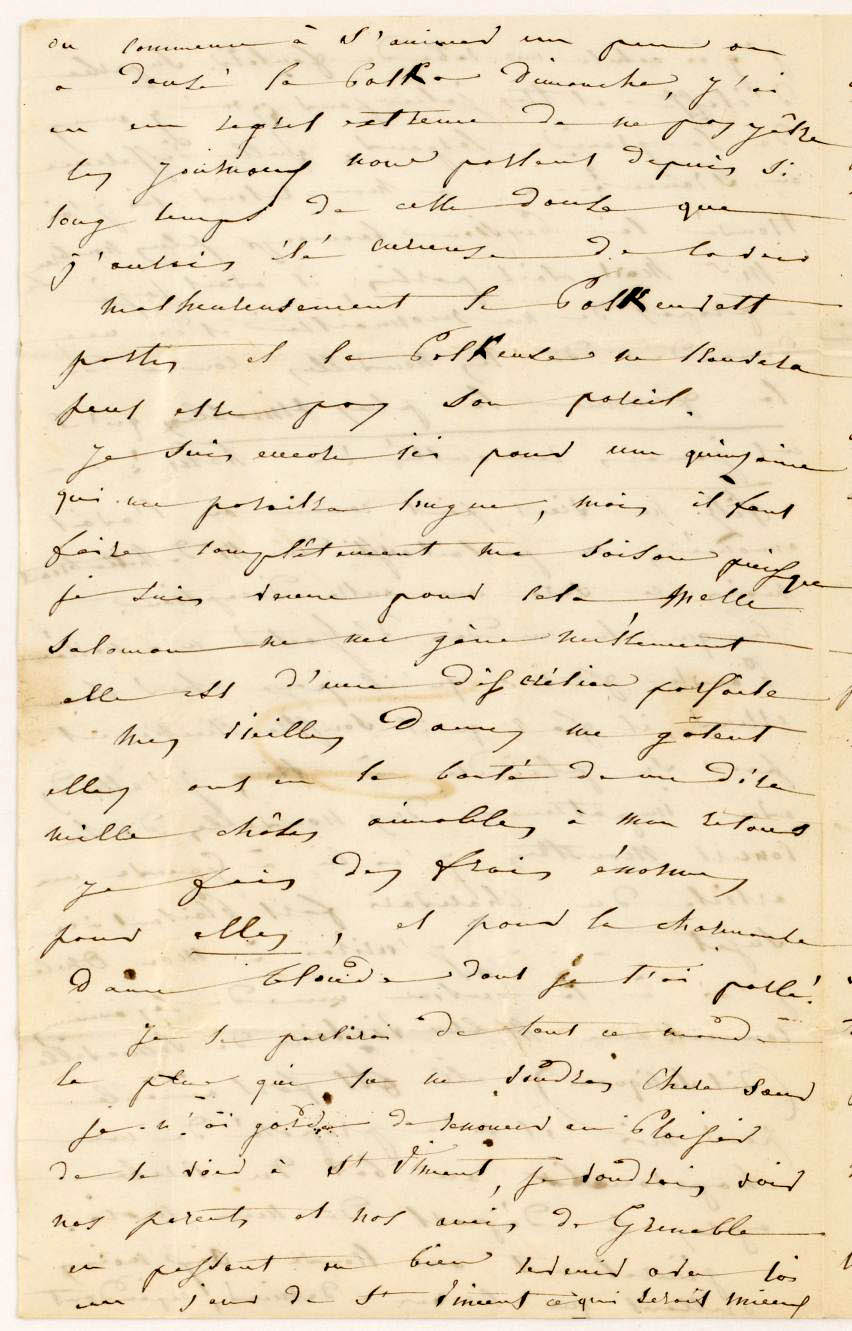 on commence à s'animer un peu on
a dansé la Polka Dimanche, j'ai
eu un regret extreme de ne pas y être
les journaux nous parlent depuis si
long temps de cette danse que
j'aurais été curieuse de la voir
malheureusement le Polkeur est
parti et la Polkeuse ne trouvera
peut etre pas son pareil.
je suis encore ici pour une quinzaine
qui me paraitra longue, mais il faut
faire complêtement ma saison puisque
je suis venue pour cela, Melle
Salomon ne me gêne nullement
elle est d'une discrétion parfaite
mes vieilles Dames me gâtent
elles ont eu la bonté de me dire
mille chôses aimables à mon retour
je fais des frais énormes
pour elles, et pour la charmante
Dame blonde dont je t'ai parlé.
je te parlerai de tout ce monde
la plus que tu ne voudras chere soeur
je n'ai garde de renoncer au Plaisir
de te voir à St Vincent, je voudrais voir
nos parents et nos amis de Grenoble
en passant ou bien revenir avec toi
un jour de St Vincent ce qui serait mieux